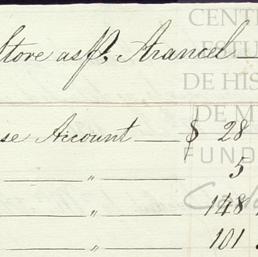 Store as p. Arancel
se Account $ 28
" 5
" 148
" 101
CENT
ESTU
DE HIS
DE M
FUND